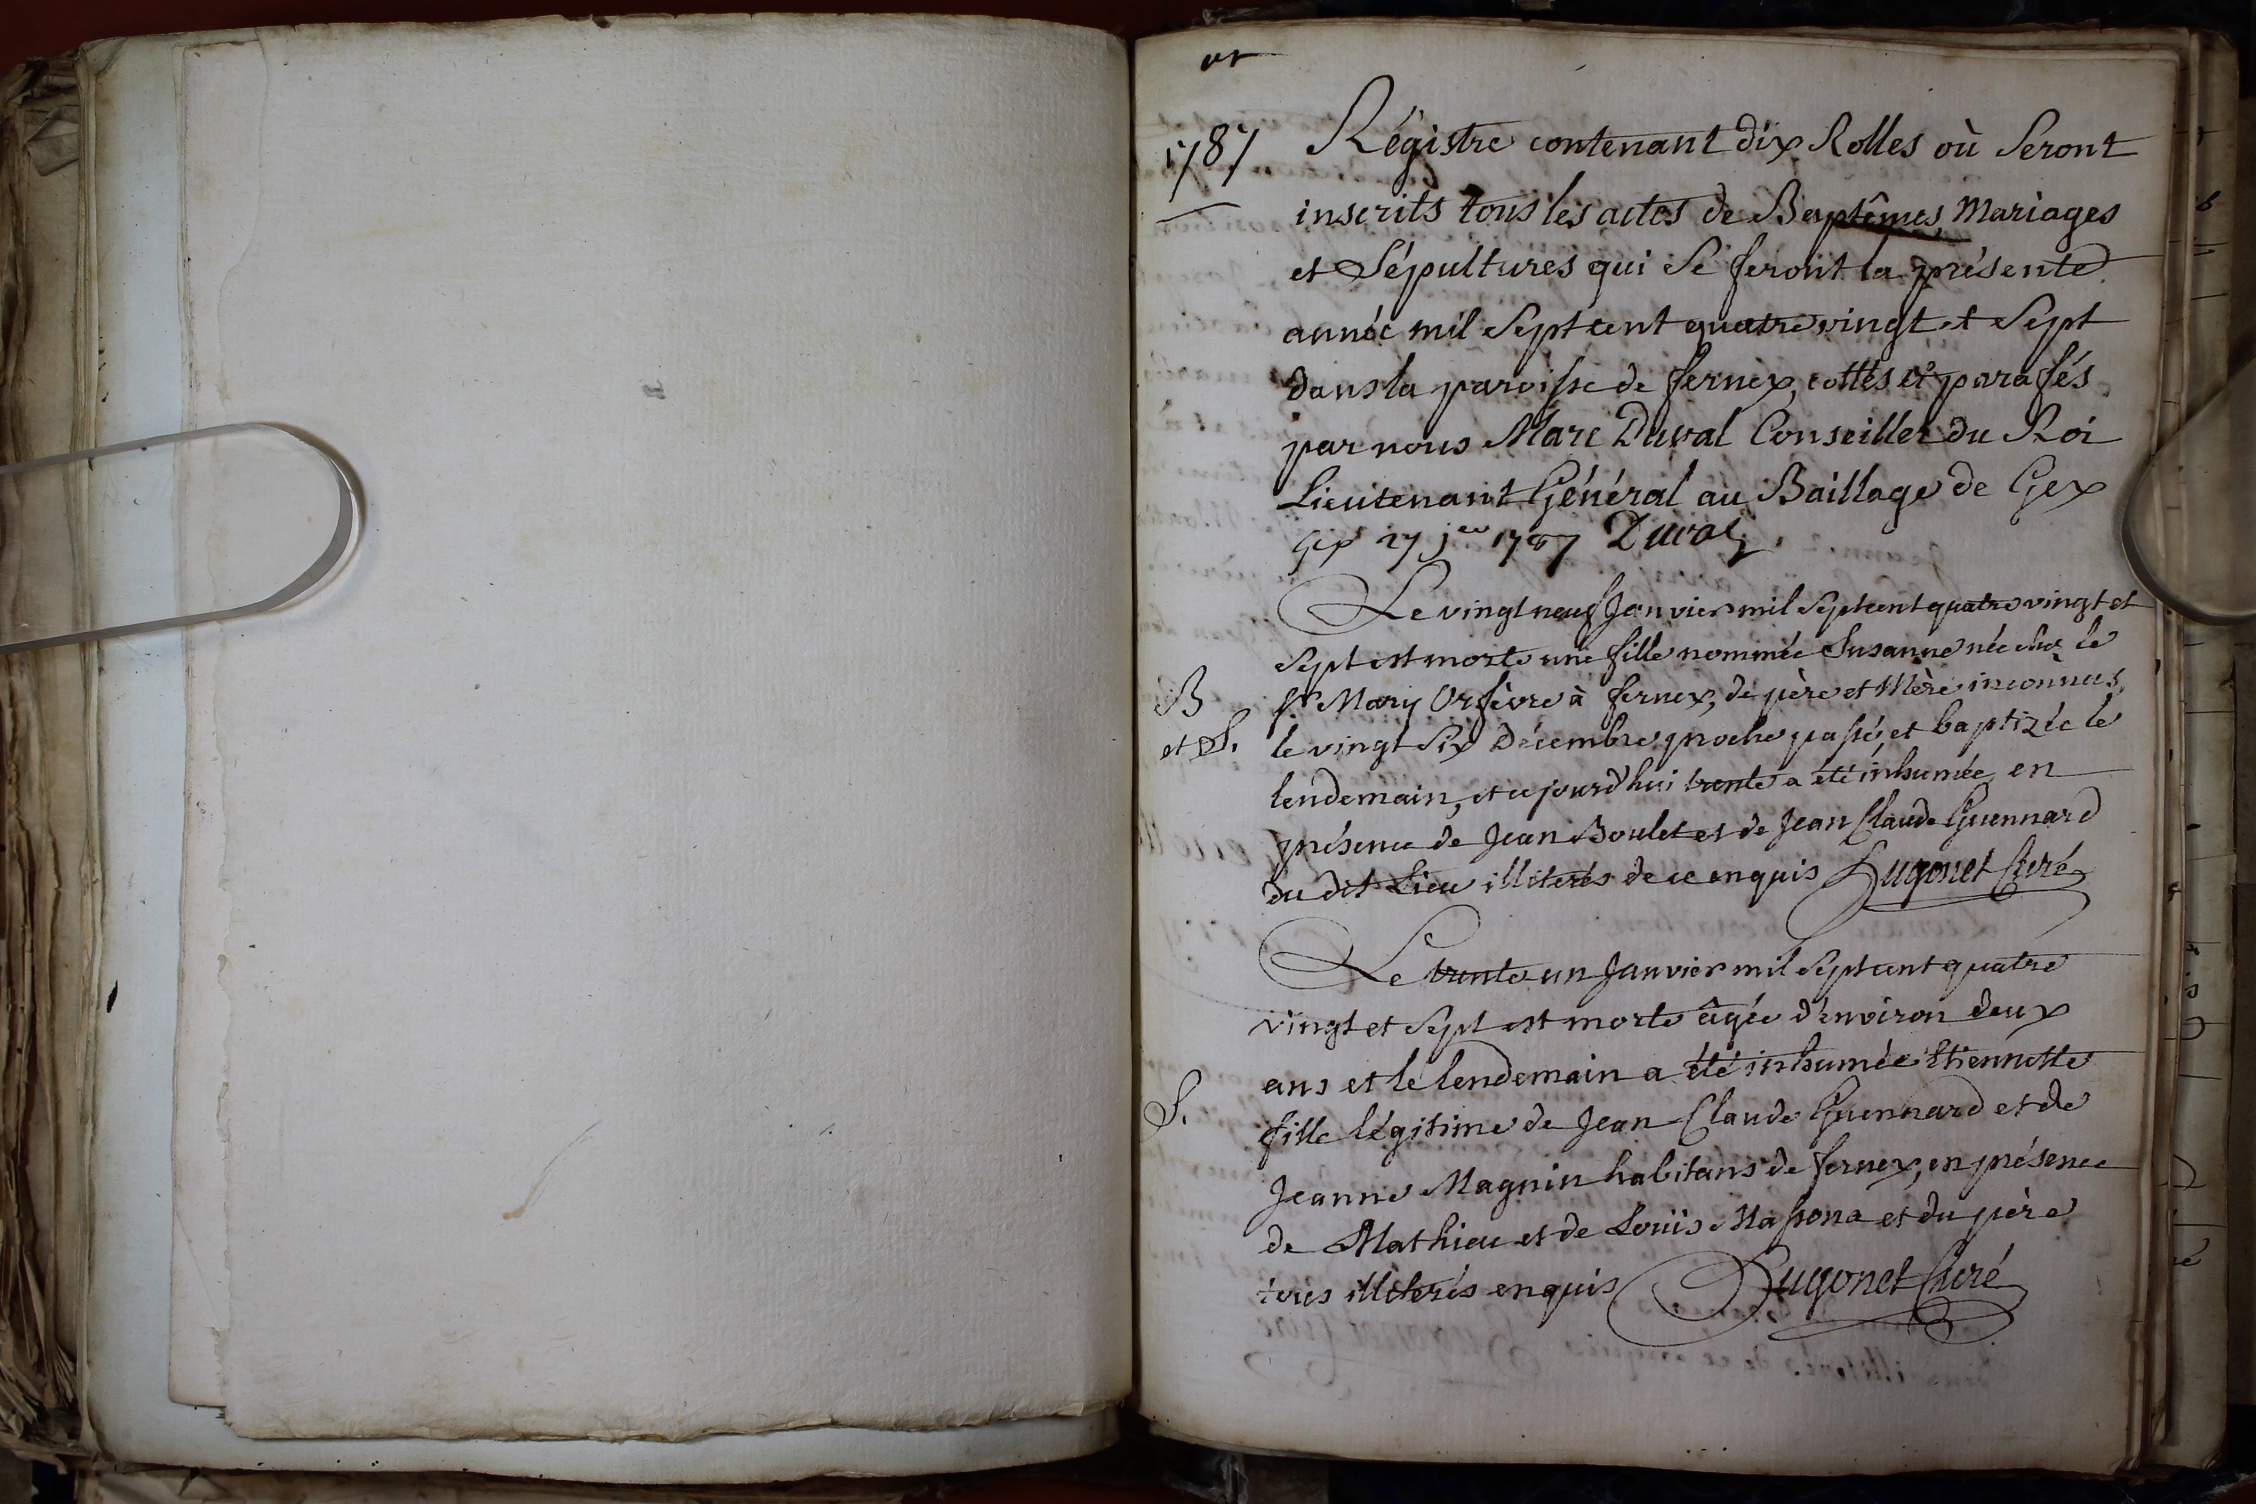 1787
Régistre contenant dix Rolles où seront
inscrits tous les actes de Baptêmes, Mariages
et Sépultures qui se feront la présente
année mil sept cent quatre vingt et sept
dans la paroisse de fernex, cottés et parafés
par nous Marc Duval Conseiller du Roi
Lieutenant Général au Baillage de Gex
Gex 27 j.er 1787 Duval
Le vingt neuf Janvier mil sept cent quatre vingt et
sept est morte une fille nommée Susanne née chez le
B
et S.
Sr Mary Orfèvre à fernex, de père et Mère inconnus,
le vingt six Décembre proche passé, et baptizée le
lendemain, et ce jourd'hui trente a été inhumée en
présence de Jean Boulet et de Jean Claude Guennard
du dit Lieu illiterés de ce enquis Hugonet Curé
Le trente un Janvier mil sept cent quatre
vingt et sept est morte âgée d'environ deux
ans et le lendemain a été inhumée Etiennette
S.
fille légitime de Jean Claude Guennard et de
Jeanne Magnin habitans de fernex, en présence
de Mathieu et de Louis Massona et du père
illiterés enquis Hugonet Curé